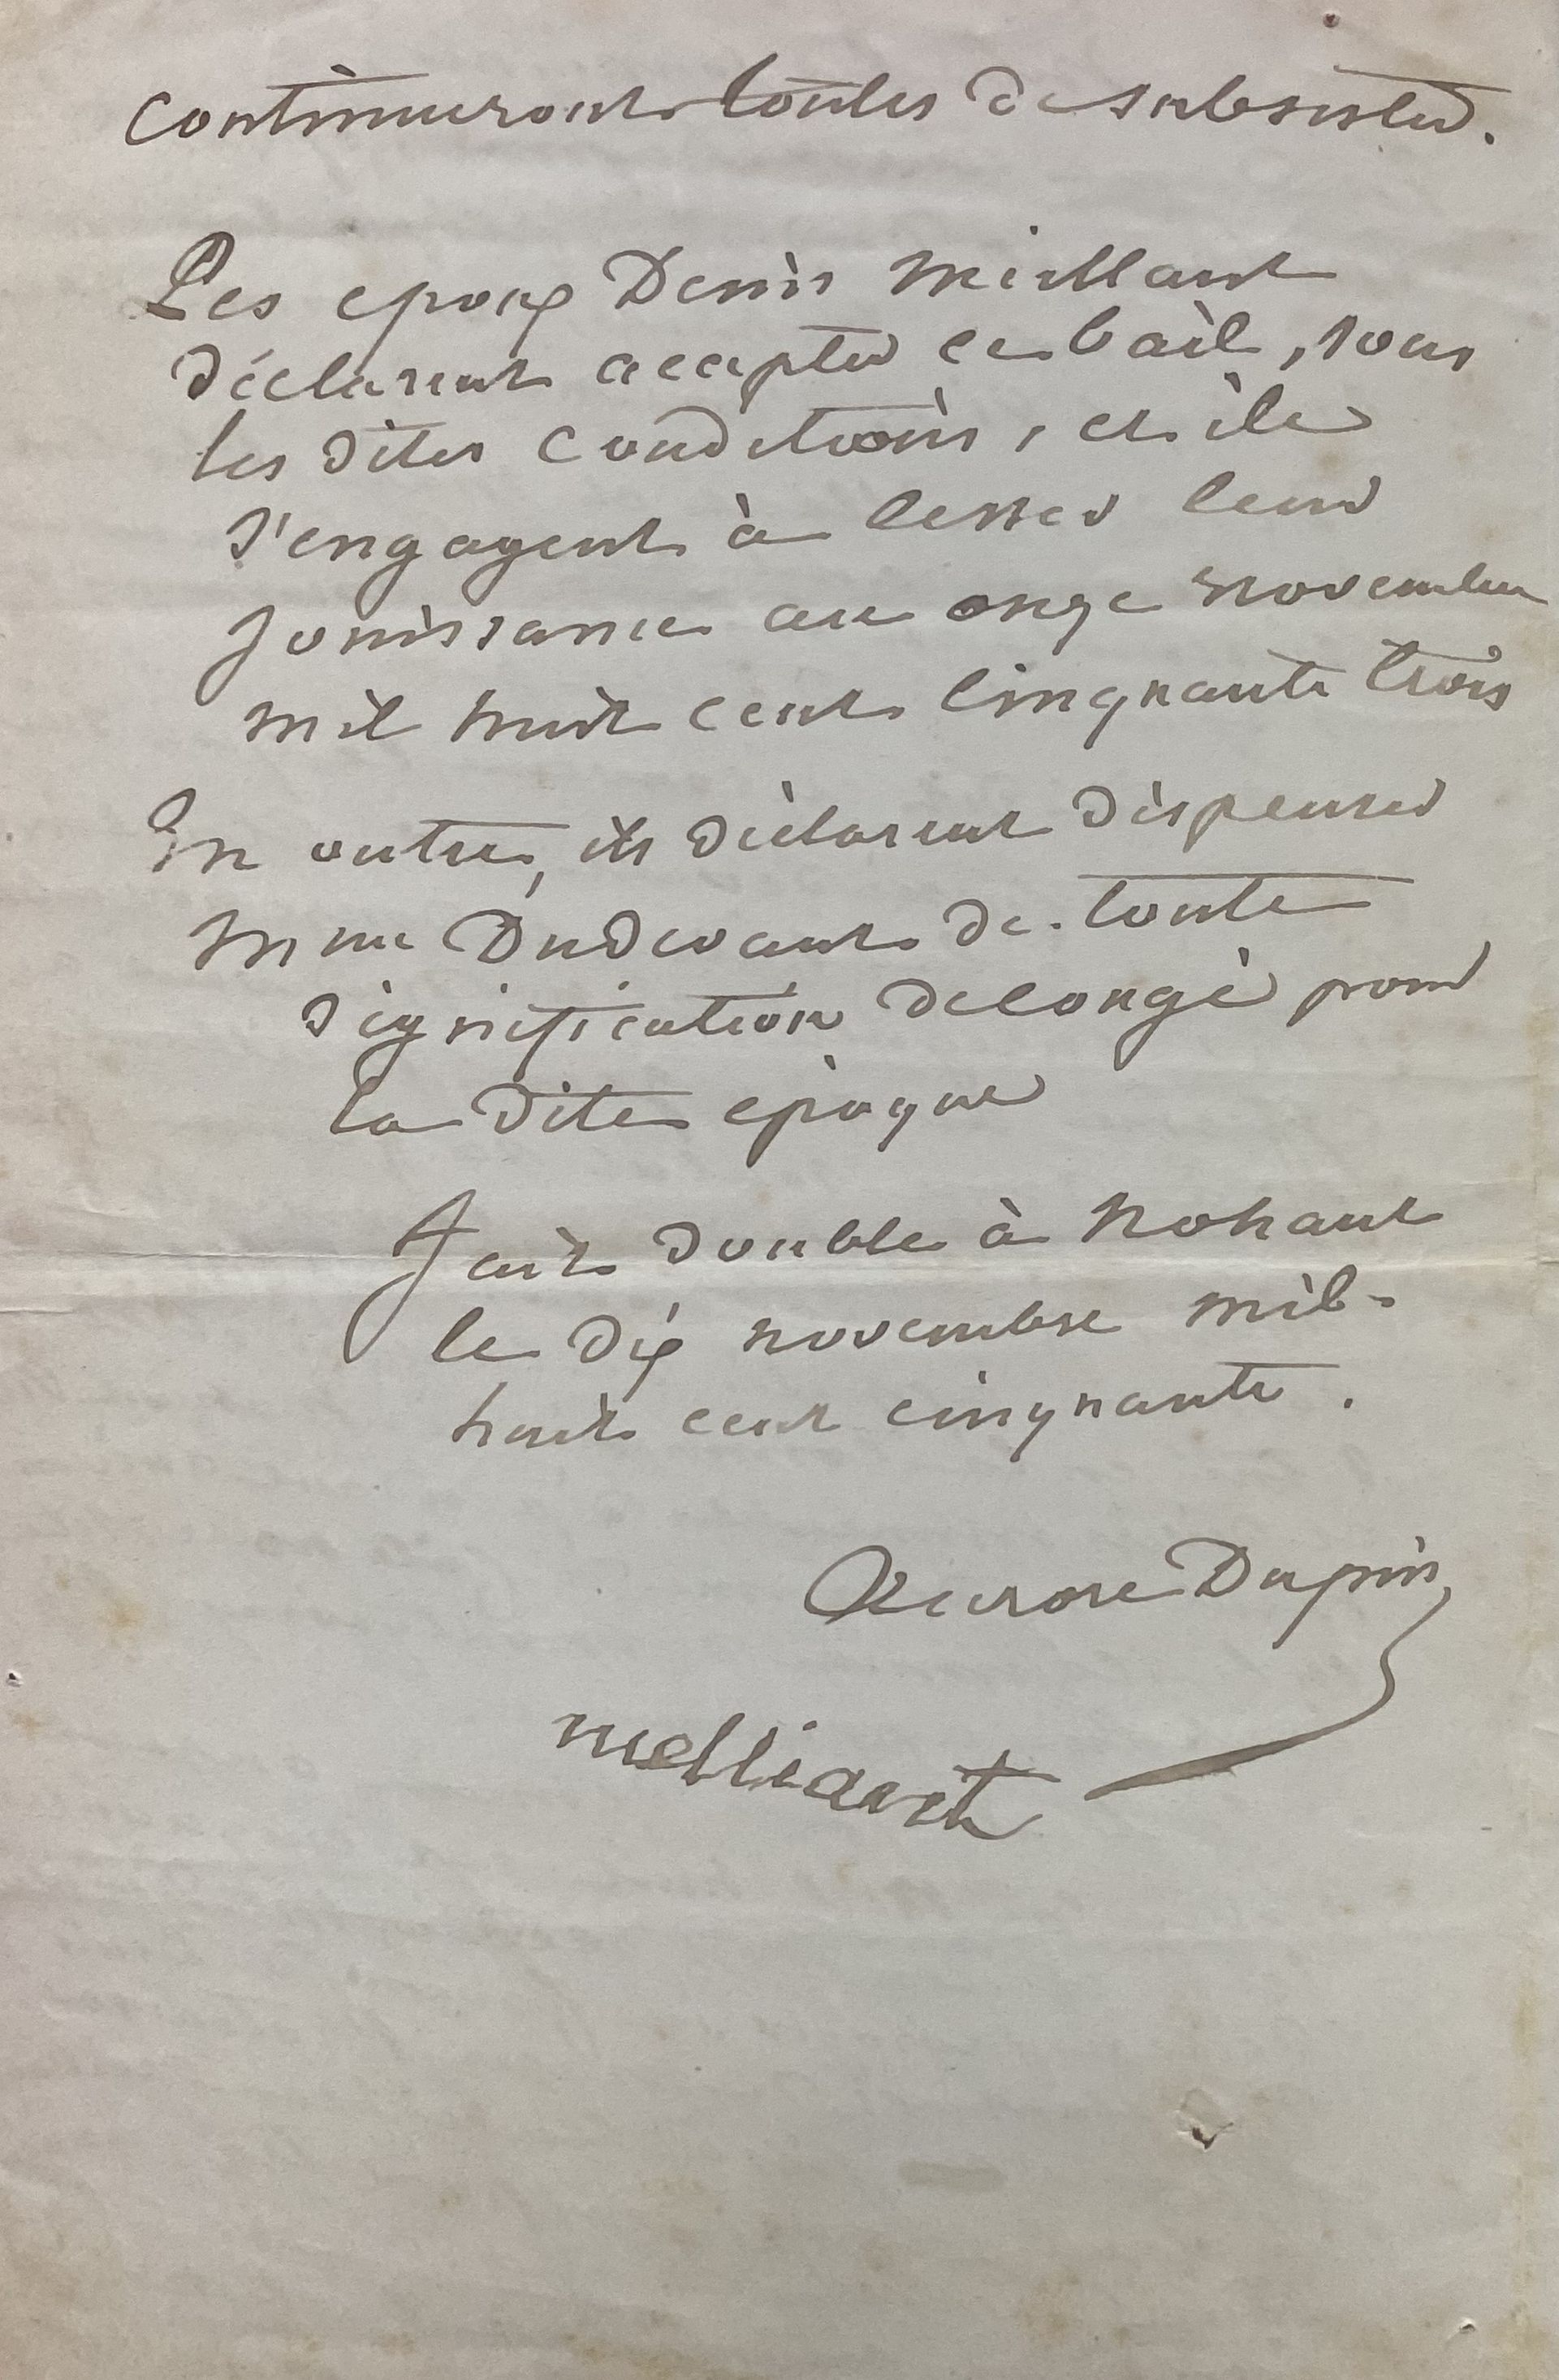 continueront toutes de subsister.
Les epoux Denis Meillant
déclarent accepter ce bail, sous
les dites conditions, et ils
s'engagent à cesser leur
jouissance au onze novembre
mil huit cent cinquante trois
En outre, ils déclarent dispenser
Mme Dudevant de toute
signification de congé pour
la dite époque
Fait double à Nohant
le dix novembre mil-
huit cent cinquante.
Aurore Dupin
melliant